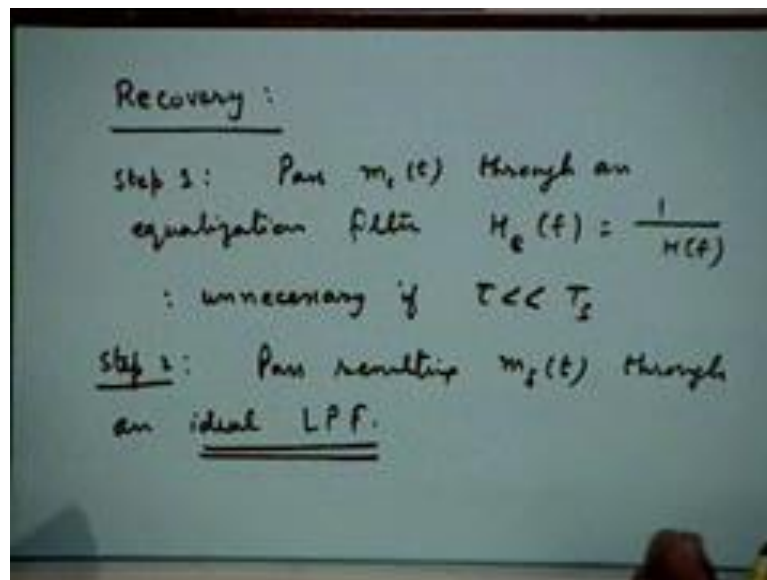 Recovery :
Step 1: Pass m_s(t) through an
equalization filter H_e(f) = 1/H(f)
: unnecessary if τ << T_s
Step 2: Pass resulting m_s(t) through
an ideal LPF.